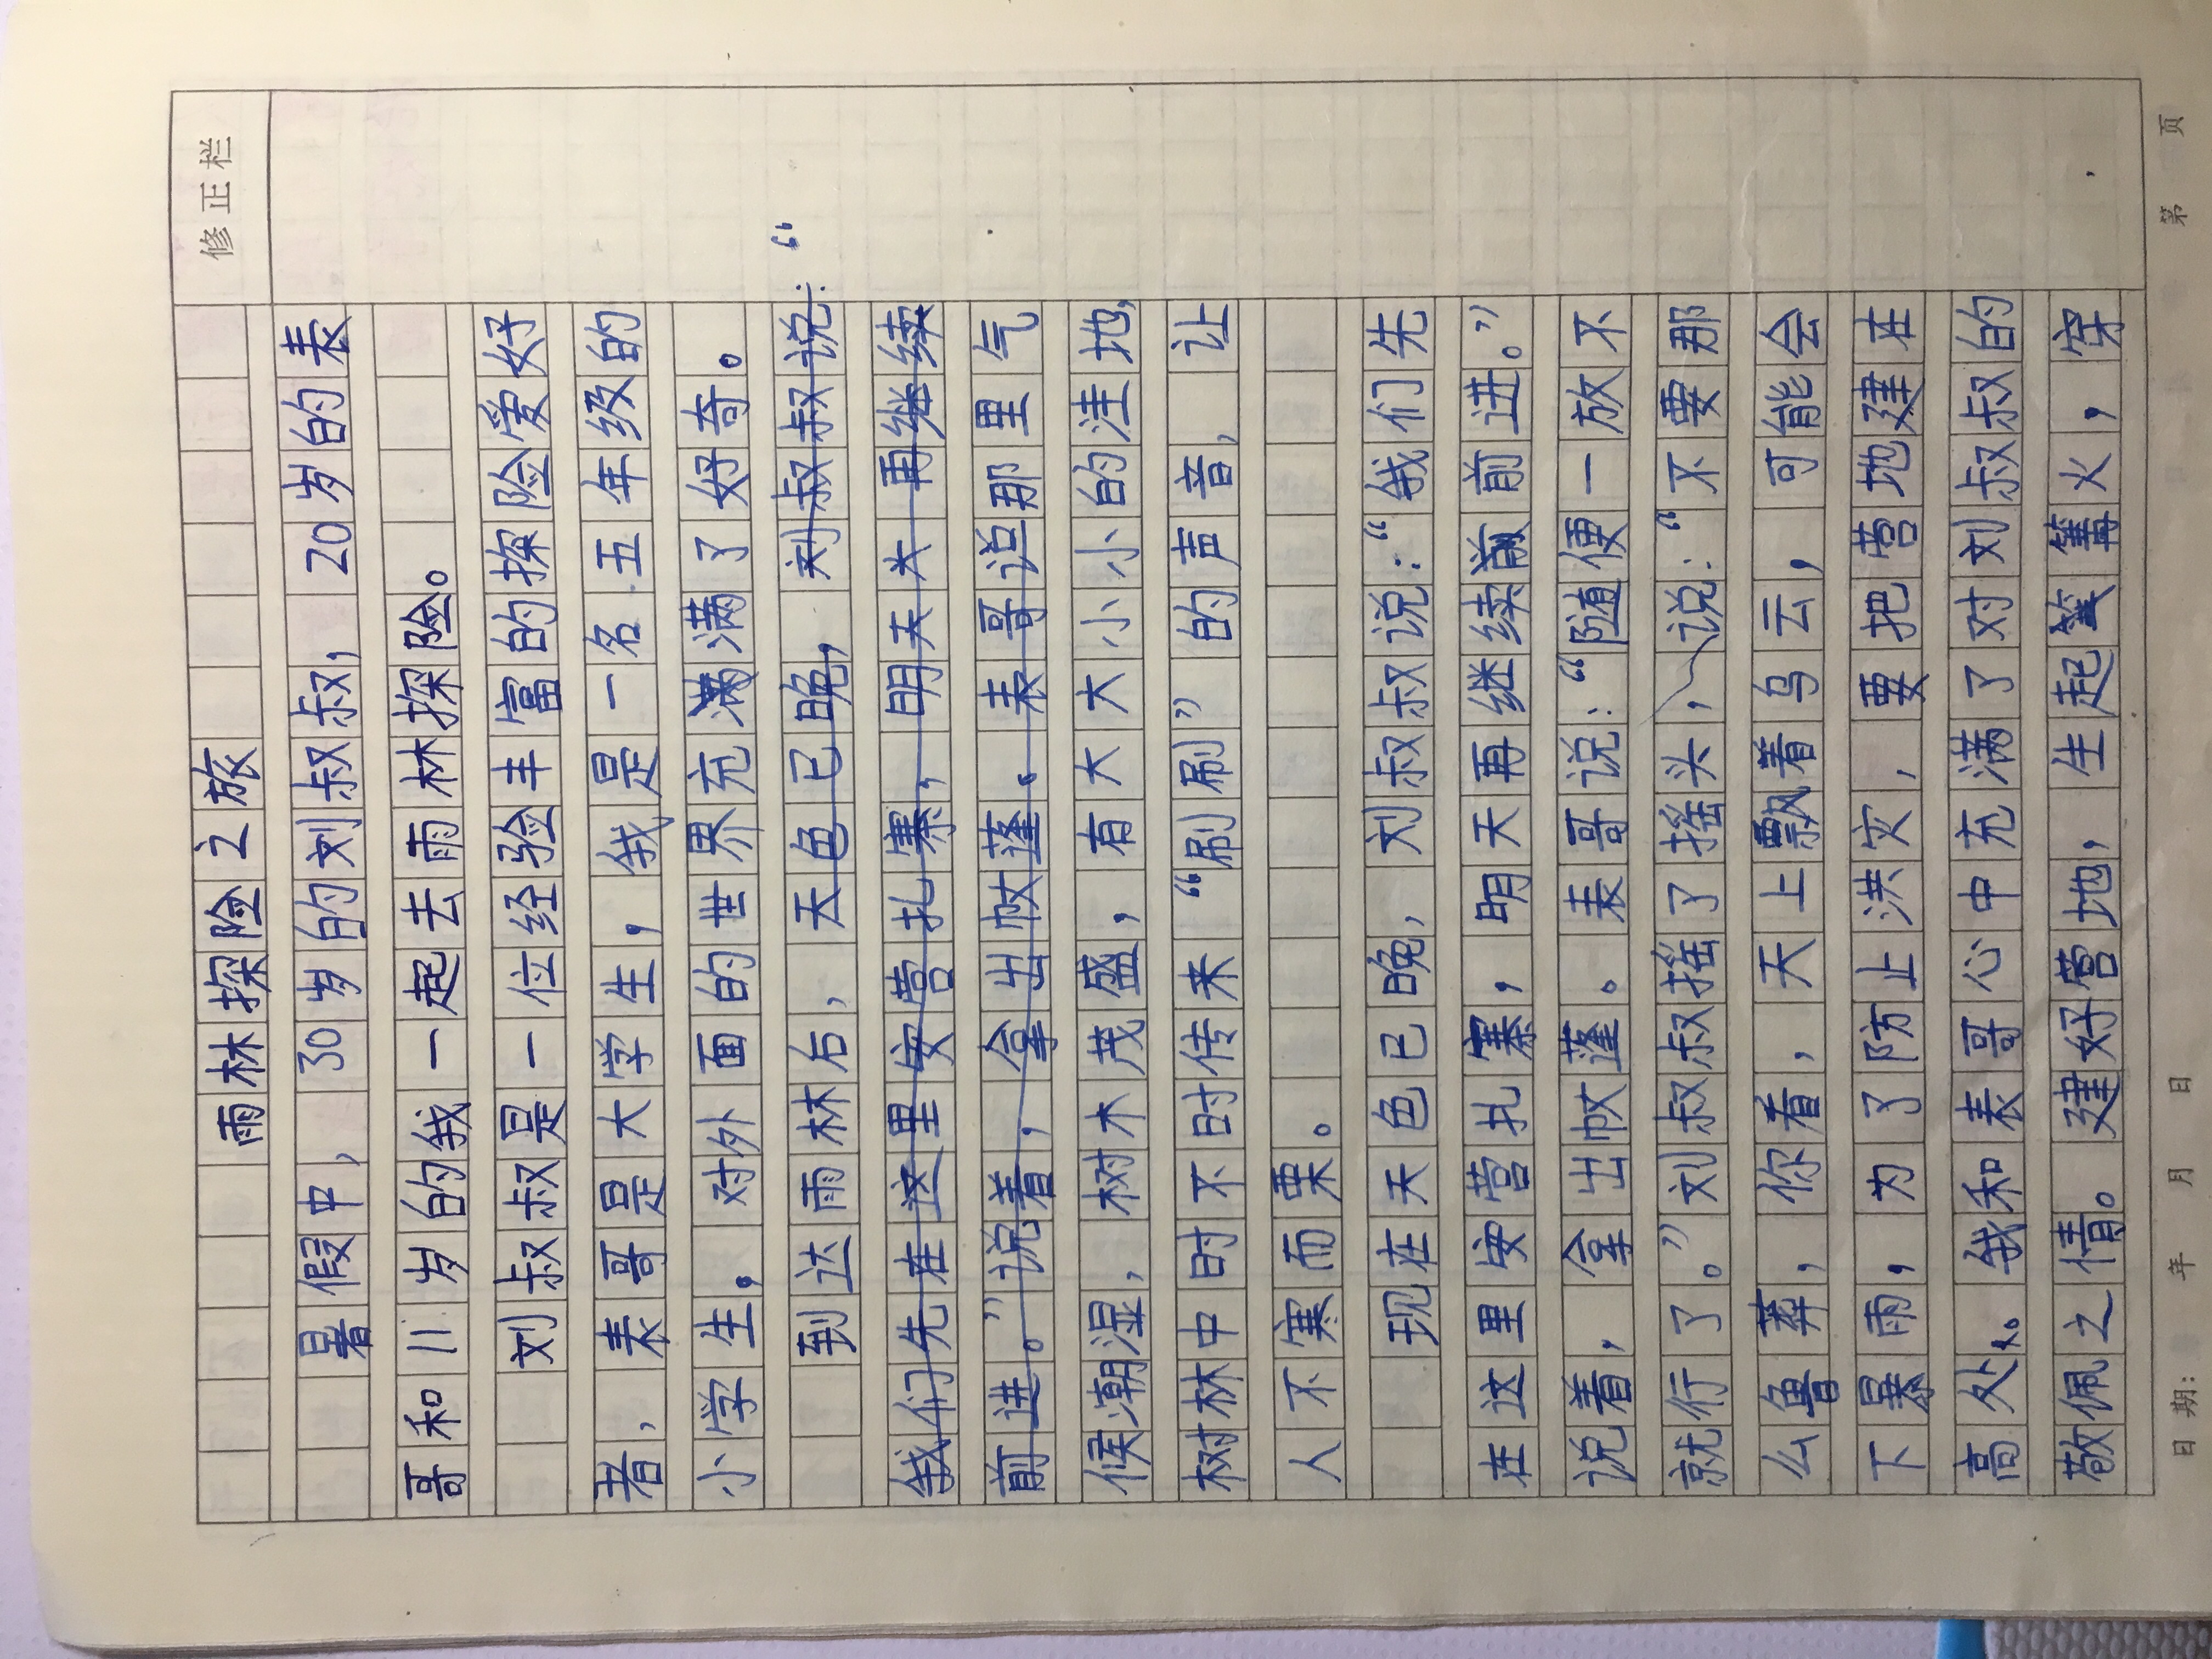 修正栏
雨林探险之旅
暑假中，30岁的刘叔叔，20岁的表
哥和11岁的我一起去雨林探险。
刘叔叔是一位经验丰富的探险爱好
者，表哥是大学生，我是一名五年级的
小学生。对外面的世界充满满了好奇。
到达雨林后，天色已晚，刘叔叔说：“
我们先在这里安营扎寨，明天大再继续
前进。”说着，拿出帐蓬。表哥说那里气
候潮湿，树木茂盛，有大大小小的洼地，
树林中时不时传来“刷刷”的声音，让
人不寒而栗。
现在天色已晚，刘叔叔说：“我们先
在这里安营扎寨，明天再继续前前进。”
说着，拿出帐蓬。表哥说：“随便一放不
就行了。”刘叔叔摇了摇头，说：“不要那
么鲁莽，你看，天上飘着乌云，可能会
下暴雨，为了防止洪灾，要把营地建在
高处。我和表哥心中充满了对刘叔叔的
敬佩之情。建好营地，生起篝火，穿
日期： 年 月 日 第 页